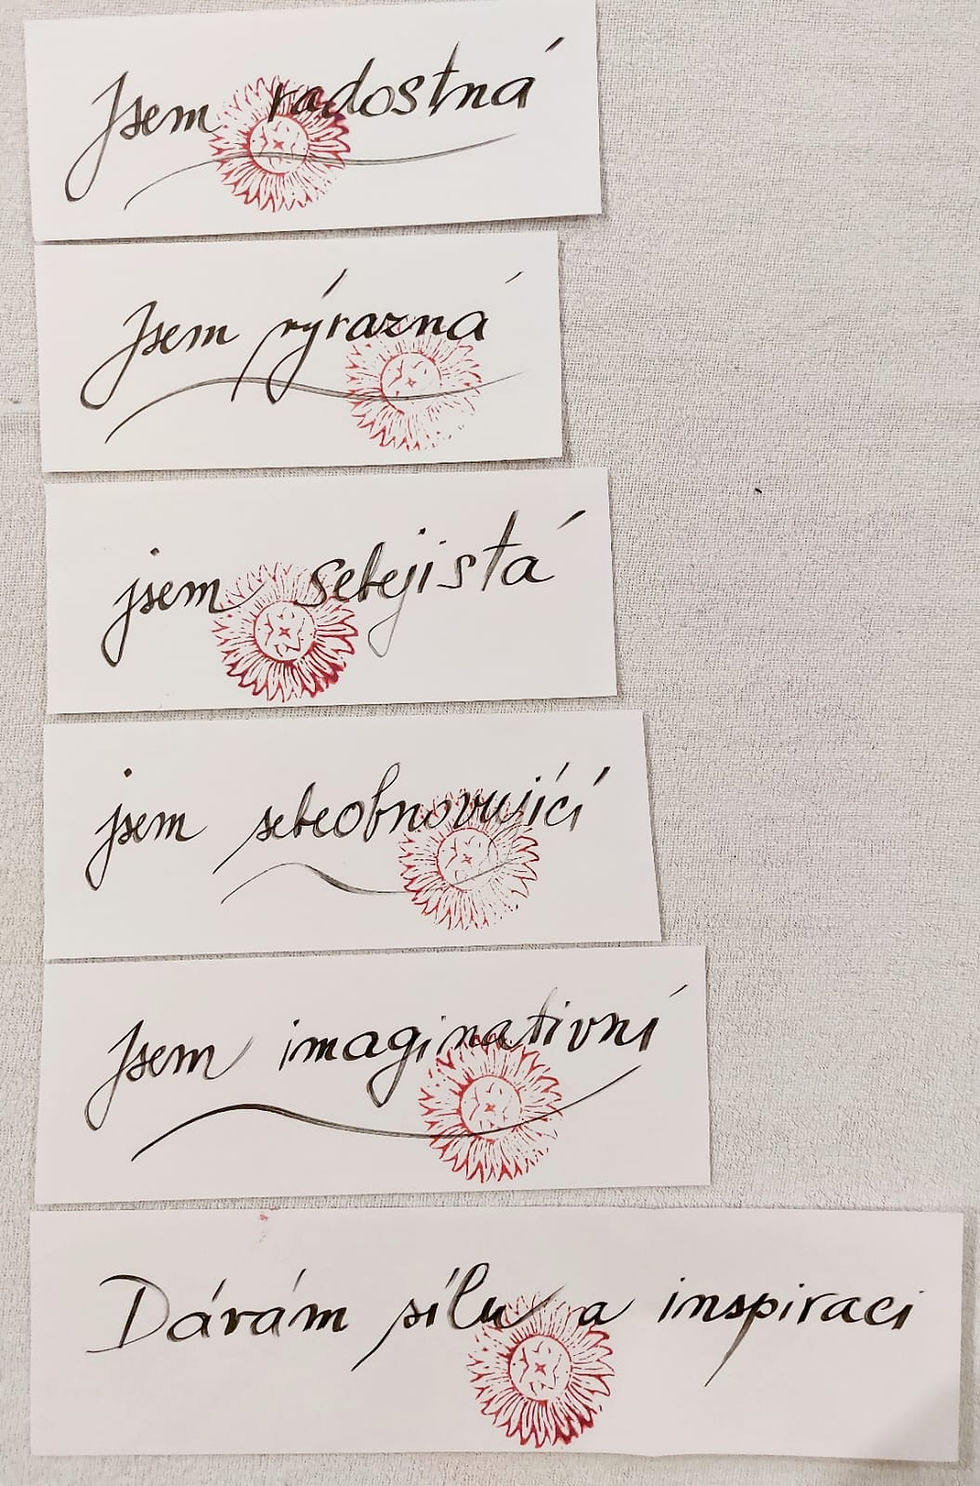 Jsem radostná
Jsem výrazná
jsem sebejistá
jsem sebeobnovující
Jsem imaginativní
Dávám sílu a inspiraci